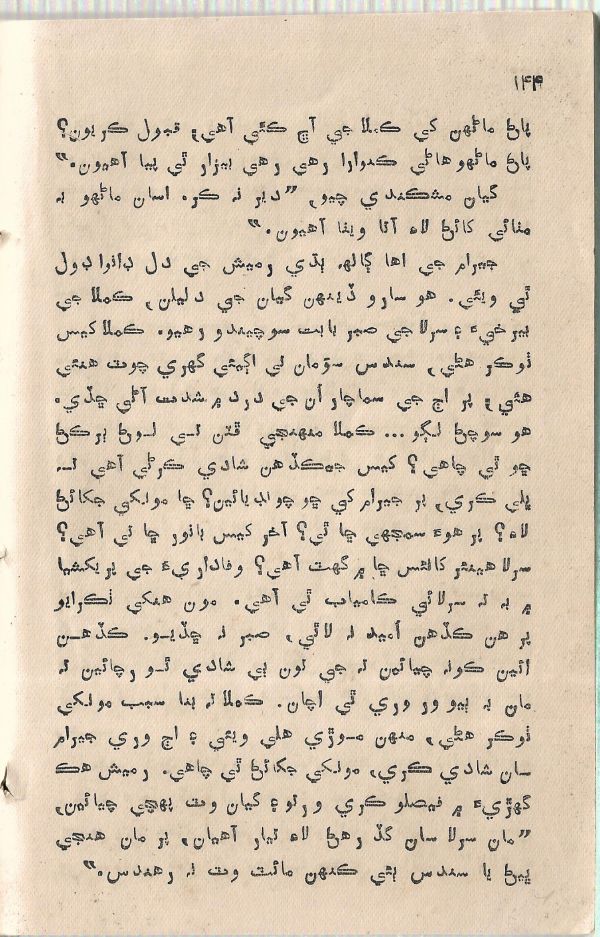 ۱۴۴
پاڻ ماڻهن کي ڪملا جي آڇ ڪئي آهي، قبول ڪريون؟
پاڻ ماڻهو هاڻي ڪنوارا رهي رهي بيزار ٿي پيا آهيون."
گيان مشڪندي چيو، "دير نہ ڪر. اسان ماڻهو بہ
مٺائي کائڻ لاءِ آتا ويٺا آهيون."
جيرام جي اها ڳالهہ ٻڌي رميش جي دل ڊانواڊول
ٿي ويئي. هو سارو ڏينهن گيان جي دليلن، ڪملا جي
بيرخيءَ ۽ سرلا جي صبر بابت سوچيندو رهيو. ڪملا کيس
ٺوڪر هڻي، سندس سؤمان تي اڳيئي گهري چوٽ هنئي
هئي، پر اڄ جي سماچار اُن جي درد ۾ شدت آڻي ڇڏي.
هو سوچڻ لڳو... ڪملا منهنجي ڦٽن تي لوڻ ٻرڪڻ
ڇو ٿي چاهي؟ کيس جيڪڏهن شادي ڪرڻي آهي تہ
ڀلي ڪري، پر جيرام کي ڇو چوائڻائين؟ ڇا مونکي جکائڻ
لاءِ؟ پر هوءَ سمجهي ڇا ٿي؟ آخر کيس ٻانور ڇا تي آهي؟
سرلا هينئر کانئس ڇا ۾ گهٽ آهي؟ وفاداريءَ جي پريکشيا
۾ بہ تہ سرلا ئي ڪامياب ٿي آهي. مون هنکي ٺڪرايو
پر هن ڪڏهن اُميد نہ لاٿي، صبر نہ ڇڏيو. ڪڏهن
ائين ڪونہ چيائين تہ جي تون ٻي شادي ٿو رچائين تہ
مان بہ ٻيو ور وري ٿي اچان. ڪملا تہ بنا سبب مونکي
ٺوڪر هڻي، منهن موڙي هلي ويئي ۽ اڄ وري جيرام
سان شادي ڪري، مونکي جکائڻ ٿي چاهي. رميش هڪ
گهڙيءَ ۾ فيصلو ڪري ورتو ۽ گيان وٽ پهچي چيائين،
"مان سرلا سان گڏ رهڻ لاءِ تيار آهيان، پر مان هنجي
ڀيڻ يا سندس ٻئي ڪنهن مائٽ وٽ نہ رهندس."